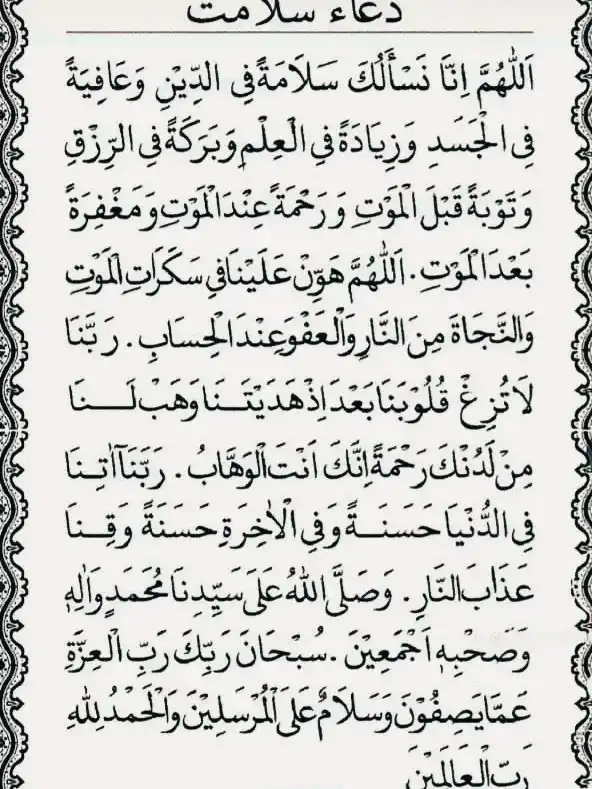 دعاء سلامت
اَللّٰهُمَّ اِنَّا نَسْأَلُكَ سَلَامَةً فِى الدِّيْنِ وَعَافِيَةً
فِى الْجَسَدِ وَزِيَادَةً فِى الْعِلْمِ وَبَرَكَةً فِى الرِّزْقِ
وَتَوْبَةً قَبْلَ الْمَوْتِ وَرَحْمَةً عِنْدَ الْمَوْتِ وَمَغْفِرَةً
بَعْدَ الْمَوْتِ. اَللّٰهُمَّ هَوِّنْ عَلَيْنَا فِى سَكَرَاتِ الْمَوْتِ
وَالنَّجَاةَ مِنَ النَّارِ وَالْعَفْوَ عِنْدَ الْحِسَابِ. رَبَّنَا
لَا تُزِغْ قُلُوْبَنَا بَعْدَ اِذْ هَدَيْتَنَا وَهَبْ لَنَا
مِنْ لَدُنْكَ رَحْمَةً اِنَّكَ اَنْتَ الْوَهَّابُ. رَبَّنَا اٰتِنَا
فِى الدُّنْيَا حَسَنَةً وَفِى الْاٰخِرَةِ حَسَنَةً وَقِنَا
عَذَابَ النَّارِ. وَصَلَّى اللّٰهُ عَلَى سَيِّدِنَا مُحَمَدٍ وَاٰلِهٖ
وَصَحْبِهٖ اَجْمَعِيْنَ. سُبْحَانَ رَبِّكَ رَبِّ الْعِزَّةِ
عَمَّا يَصِفُوْنَ وَسَلَامٌ عَلَى الْمُرْسَلِيْنَ وَالْحَمْدُ لِلّٰهِ
رَبِّ الْعَالَمِيْنَ